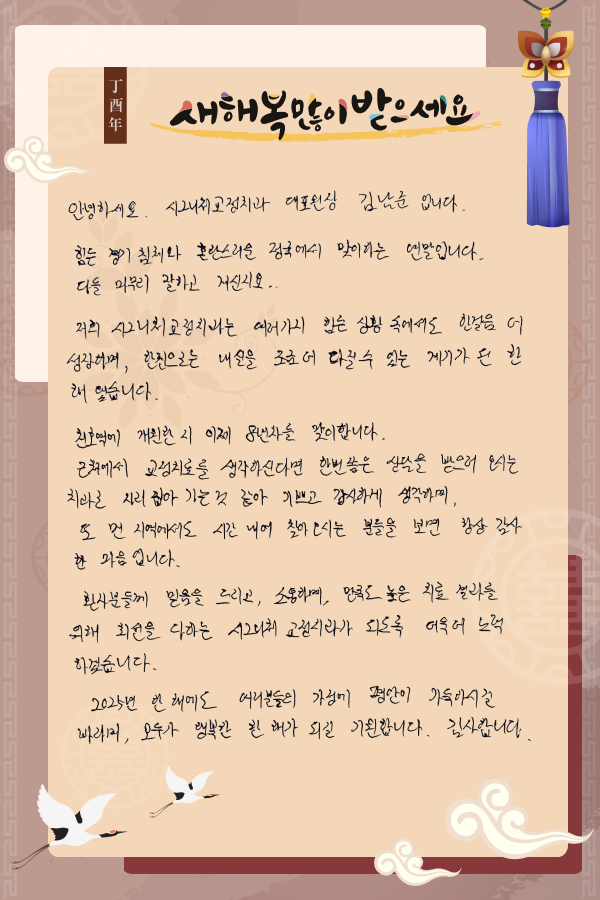 丁酉年
새해 복 많이 받으세요
안녕하세요. 시그니처교정치과 대표원장 김남준 입니다.
힘든 경기 침체와 혼란스러운 정국에서 맞이하는 연말입니다.
다들 마무리 잘하고 계신지요..
저희 시그니처교정치과는 여러가지 힘든 상황 속에서도 한걸음 더
성장하며, 한편으로는 내실을 조금 더 다질 수 있는 계기가 된 한
해 였습니다.
천호역에 개원한 시 이제 8년차를 맞이합니다.
근처에서 교정치료를 생각하신다면 한번쯤은 상담을 받으러 오시는
치과로 자리 잡아 가는 것 같아 기쁘고 감사하게 생각하며,
또 먼 지역에서도 시간 내어 찾아오시는 분들을 보면 항상 감사
한 마음 입니다.
환자분들께 믿음을 드리고, 소통하며, 만족도 높은 치료 결과를
위해 최선을 다하는 시그니처 교정치과가 되도록 더욱 더 노력
하겠습니다.
2025년 한 해에도 여러분들의 가정에 평안이 가득하시길
바라며, 모두가 행복한 한 해가 되길 기원합니다. 감사합니다.